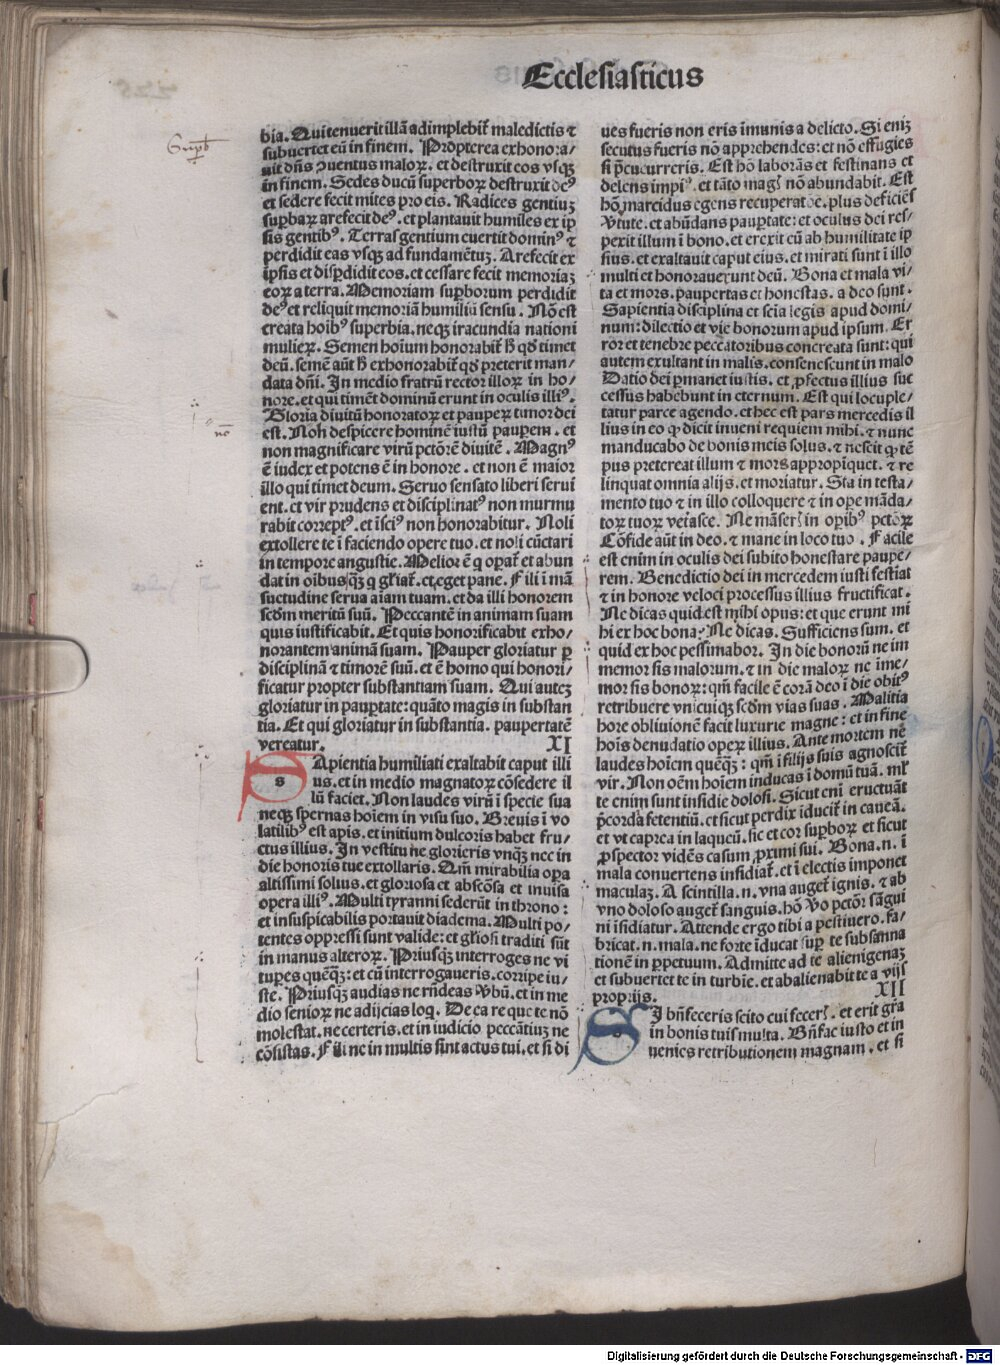 Ecclesiasticus
bia. Qui tenuerit illā adimplebit̄ maledictis ⁊
subuertet eū in finem. Propterea exhonora/
uit dn̄s ꝯuentus maloꝝ. et destruxit eos vsqꝫ
in finem. Sedes ducū superboꝝ destruxit de⁹
et sedere fecit mites pro eis. Radices gentiuꝫ
supbaꝝ arefecit de⁹. et plantauit humiles ex ip
sis gentib⁹. Terras gentium euertit domin⁹ ⁊
perdidit eas vsqꝫ ad fundamētuꝫ. Arefecit ex
ipsis et disꝑdidit eos. et cessare fecit memoriaꝫ
eoꝝ a terra. Memoriam suꝑborum perdidit
de⁹ et reliquit memoriā humiliū sensu. Nō est
creata hoib⁹ superbia. neqꝫ iracundia nationi
mulieꝝ. Semen hoīum honorabit̄ h̄ qd̄ timet
deū. semē aūt h̄ exhonorabit̄ qd̄ preterit man/
data dn̄i. In medio fratrū rector illoꝝ in ho/
nore. et qui timēt dominū erunt in oculis illi⁹.
Gloria diuitū honoratoꝝ et pauperꝝ timor dei
est. Noli despicere hominē iustū pauꝑem. et
non magnificare virū pctōrē diuitē. Magn⁹
ē iudex et potens ē in honore. et non ē maior
illo qui timet deum. Seruo sensato liberi serui
ent. et vir prudens et disciplinat⁹ non murmu
rabit corrept⁹. et īsci⁹ non honorabitur. Noli
extollere te ī faciendo opere tuo. et noli cūctari
in tempore angustie. Melior ē q̄ oꝑat̄ et abun
dat in oībus qꝫ q̄ gl̄iat̄. et eget pane. Fili ī mā
suetudine serua aīam tuam. et da illi honorem
scdm meritū suū. Peccantē in animam suam
quis iustificabit. Et quis honorificabit exho/
norantem animā suam. Pauper gloriatur ꝑ
disciplinā ⁊ timorē suū. et ē homo qui honori/
ficatur propter substantiam suam. Qui auteꝫ
gloriatur in pauꝑtate: quāto magis in substan
tia. Et qui gloriatur in substantia. paupertatē
vereatur. XI
Sapientia humiliati exaltabit caput illi
us. et in medio magnatoꝝ cōsedere il
lū faciet. Non laudes virū ī specie sua
neqꝫ spernas hoīem in visu suo. Breuis ī vo
latilib⁹ est apis. et initium dulcoris habet fru/
ctus illius. In vestitu ne glorieris vnqꝫ nec in
die honoris tue extollaris. Qm̄ mirabilia oꝑa
altissimi solius. et gloriosa et abscōsa et inuisa
opera illi⁹. Multi tyranni sederūt in throno:
et insuspicabilis portauit diadema. Multi po/
tentes oppressi sunt valide: et gl̄iosi traditi sūt
in manus alteroꝝ. Priusqꝫ interroges ne vi
tuꝑes quēqꝫ: et cū interrogaueris. corripe iu/
ste. Priusqꝫ audias ne rn̄deas v̄bū. et in me
dio senioꝝ ne adijcias loq̄. De ea re que te nō
molestat. ne certeris. et in iudicio peccātiuꝫ ne
cōsistas. Fili ne in multis sint actus tui. et si di
ues fueris non eris īmunis a delicto. Si eniꝫ
secutus fueris nō apprehendes: et nō effugies
si p̄cucurreris. Est hō laborās et festinans et
dolens impi⁹. et tāto maḡ nō abundabit. Est
hō marcidus egens recuperatōe. plus deficiēs
v̄tute. et abūdans pauꝑtate: et oculus dei res/
pexit illum ī bono. et erexit eū ab humilitate ip
sius. et exaltauit caput eius. et mirati sunt ī illo
multi et honorauerunt deū. Bona et mala vi/
ta et mors. paupertas et honestas. a deo sunt.
Sapientia disciplina et scīa legis apud domi/
num: dilectio et vie bonorum apud ipsum. Er
ror et tenebre peccatoribus concreata sunt: qui
autem exultant in malis. consenescunt in malo
Datio dei ꝑmanet iustis. et ꝓfectus illius suc
cessus habebunt in eternum. Est qui locuple/
tatur parce agendo. et hec est pars mercedis il
lius in eo ꝙ dicit inueni requiem mihi. ⁊ nunc
manducabo de bonis meis solus. ⁊ nescit ꝙ tē
pus pretereat illum ⁊ mors appropīquet. ⁊ re
linquat omnia alijs. et moriatur. Sta in testa/
mento tuo ⁊ in illo colloquere ⁊ in oꝑe māda/
toꝝ tuoꝝ vetasce. Ne māser̄ in oꝑib⁹ pctōꝝ
Cōfide aūt in deo. ⁊ mane in loco tuo. Facile
est enim in oculis dei subito honestare paupe/
rem. Benedictio dei in mercedem iusti festīat
⁊ in honore veloci processus illius fructificat.
Ne dicas quid est mihi opus: et que erunt mi
hi ex hoc bona? Ne dicas. Sufficiens sum. et
quid ex hoc pessimabor. In die bonorū ne im
memor sis malorum. ⁊ in die maloꝝ ne ime/
mor sis bonoꝝ: qm̄ facile ē corā deo ī die obit⁹
retribuere vnicuiqꝫ scdm vias suas. Malitia
hore obliuionē facit luxurie magne: et in fine
hoīs denudatio opeꝝ illius. Ante mortem ne
laudes hoīem quēqꝫ: qm̄ ī filijs suis agnoscit̄
vir. Non oēm hoīem inducas ī domū tuā. ml̄t
te enim sunt insidie dolosi. Sicut enī eructuāt
p̄cordia fetentiū. et sicut perdix īducit̄ in caueā.
et vt caprea in laqueū. sic et cor suꝑboꝝ et sicut
ꝓspector vidēs casum ꝓximi sui. Bona. n. ī
mala conuertens insidiat̄. et ī electis imponet
maculaꝫ. A scintilla. n. vna auget̄ ignis. ⁊ ab
vno doloso auget̄ sanguis. hō v̄o pctōr̄ sāgui
ni īsidiatur. Attende ergo tibi a pestifero. fa/
bricat. n. mala. ne forte īducat suꝑ te subsanna
tionē in ꝑpetuum. Admitte ad te alienigenaꝫ
et subuertet te in turbīe. et abalienabit te a vijs
proprijs. XII
SI bn̄feceris scito cui fecer̄. et erit gr̄a
in bonis tuis multa. Bn̄fac iusto et in
uenies retributionem magnam. et si
Digitalisierung gefördert durch die Deutsche Forschungsgemeinschaft - DFG